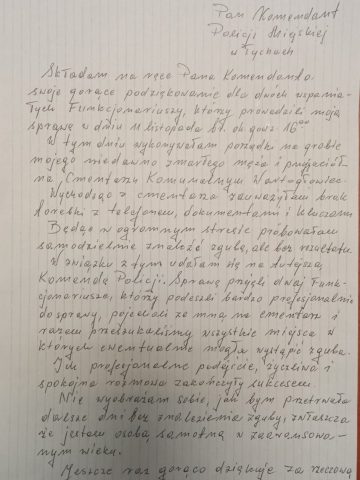 Pan Komendant
Policji Miejskiej
w Tychach
Składam na ręce Pana Komendanta
swoje gorące podziękowanie dla dwóch wspania-
łych Funkcjonariuszy, którzy prowadzili moją
sprawę w dniu 11 listopada br. ok. godz. 16⁰⁰
W tym dniu wykonywałam porządki na grobie
mojego niedawno zmarłego męża i przyjaciół
na Cmentarzu Komunalnym Wartogłowiec.
Wychodząc z cmentarza zauważyłam brak
torebki z telefonem, dokumentami i kluczami
Będąc w ogromnym stresie próbowałam
samodzielnie znaleźć zgubę, ale bez rezultatu.
W związku z tym udałam się na tutejszą
Komendę Policji. Sprawę przyjęli dwaj Funk-
cjonariusze, którzy podeszli bardzo profesjonalnie
do sprawy, pojechali ze mną na cmentarz i
razem przeszukaliśmy wszystkie miejsca w
których ewentualnie mogła wystąpić zguba.
Ich profesjonalne podejście, życzliwa i
spokojna rozmowa zakończyły sukcesem.
Nie wyobrażam sobie, jak bym przetrwała
dalsze dni bez znalezienia zguby, zwłaszcza
że jestem osobą samotną w zaawansowa-
nym wieku.
Jeszcze raz gorąco dziękuję za rzeczową